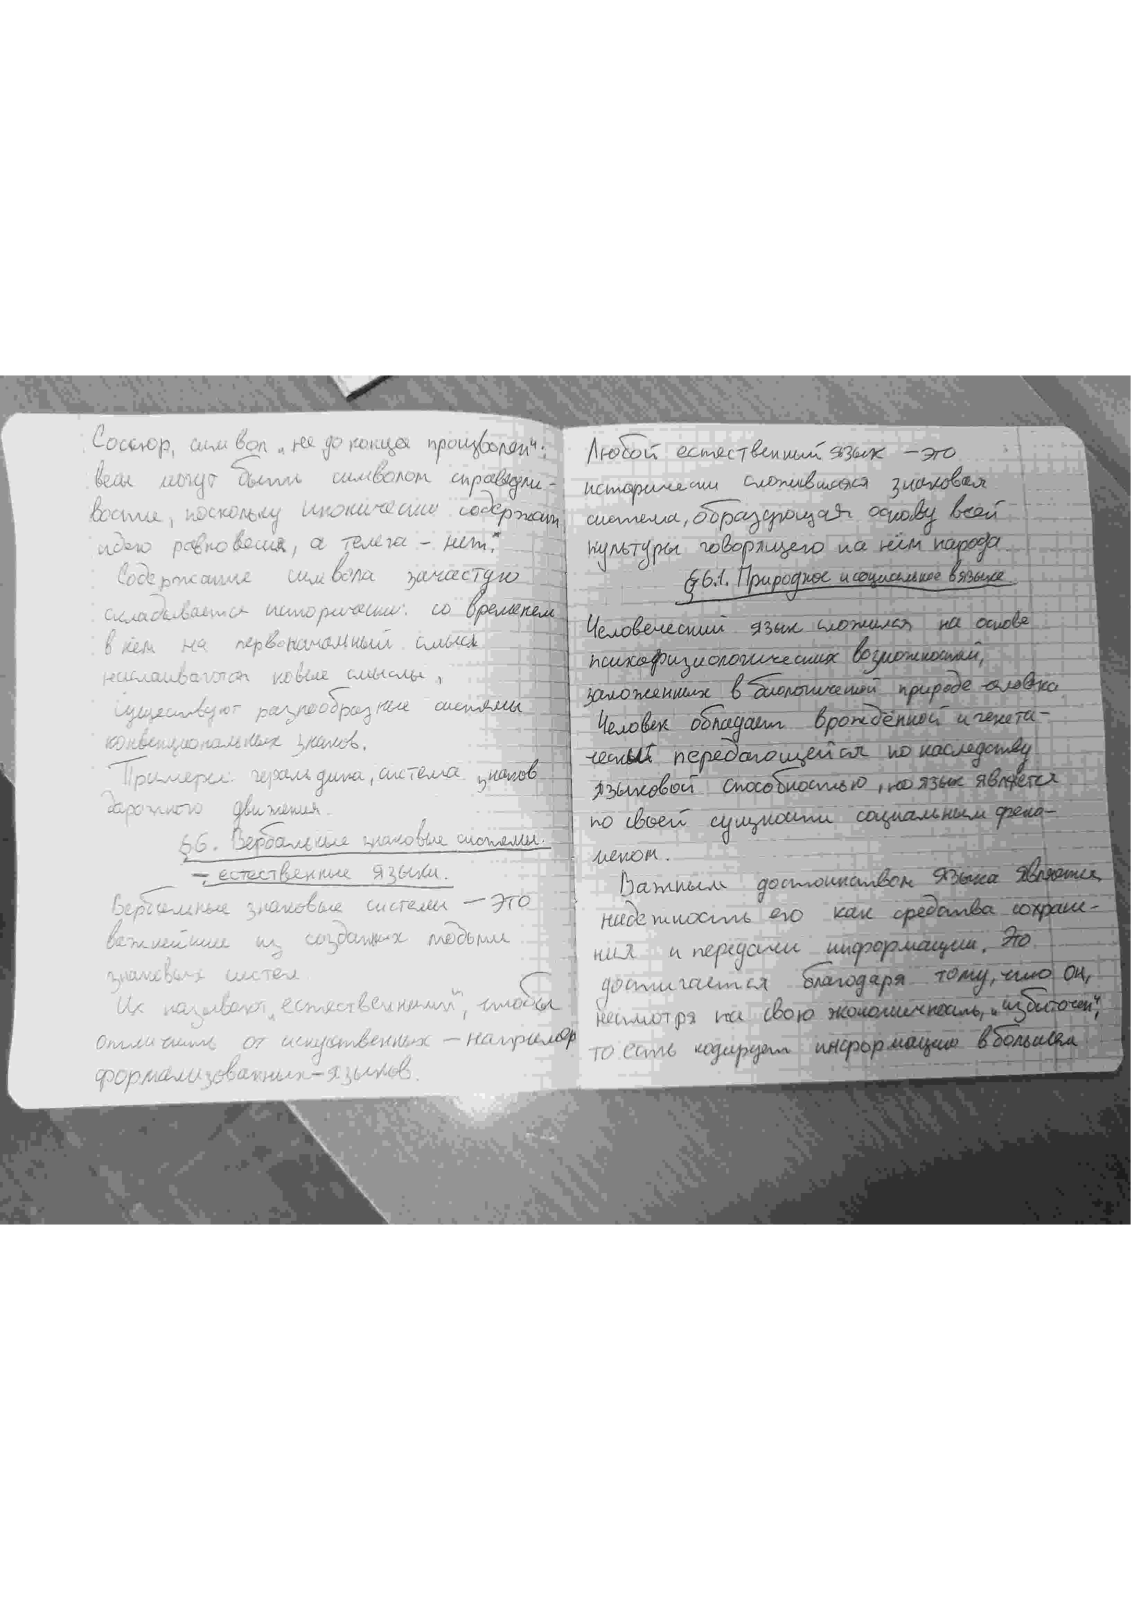 Соссюр, символ „не до конца произволен":
весы могут быть символом справедли-
вости, поскольку иконически содержат
идею равновесия, а телега – нет."
Содержание символа зачастую
складывается исторически: со временем
в нём на первоначальный смысл
наслаиваются новые смыслы.
Существуют разнообразные системы
конвенциональных знаков.
Примеры: геральдика, система знаков
дорожного движения.
§6. Вербальные знаковые системы –
– естественные языки.
Вербальные знаковые системы – это
важнейшие из созданных людьми
знаковых систем.
Их называют „естественными", чтобы
отличить от искусственных – например
формализованных – языков.
Любой естественный язык – это
исторически сложившаяся знаковая
система, образующая основу всей
культуры говорящего на нём народа
§6.1. Природное и социальное в языке
Человеческий язык сложился на основе
психофизиологических возможностей,
заложенных в биологической природе человека.
Человек обладает врождённой и генети-
ческий передающейся по наследству
языковой способностью, но язык является
по своей сущности социальным фено-
меном.
Важным достоинством языка является
надежность его как средства сохране-
ния и передачи информации. Это
достигается благодаря тому, что он,
несмотря на свою экономичность, „избыточен",
то есть кодирует информацию в большем